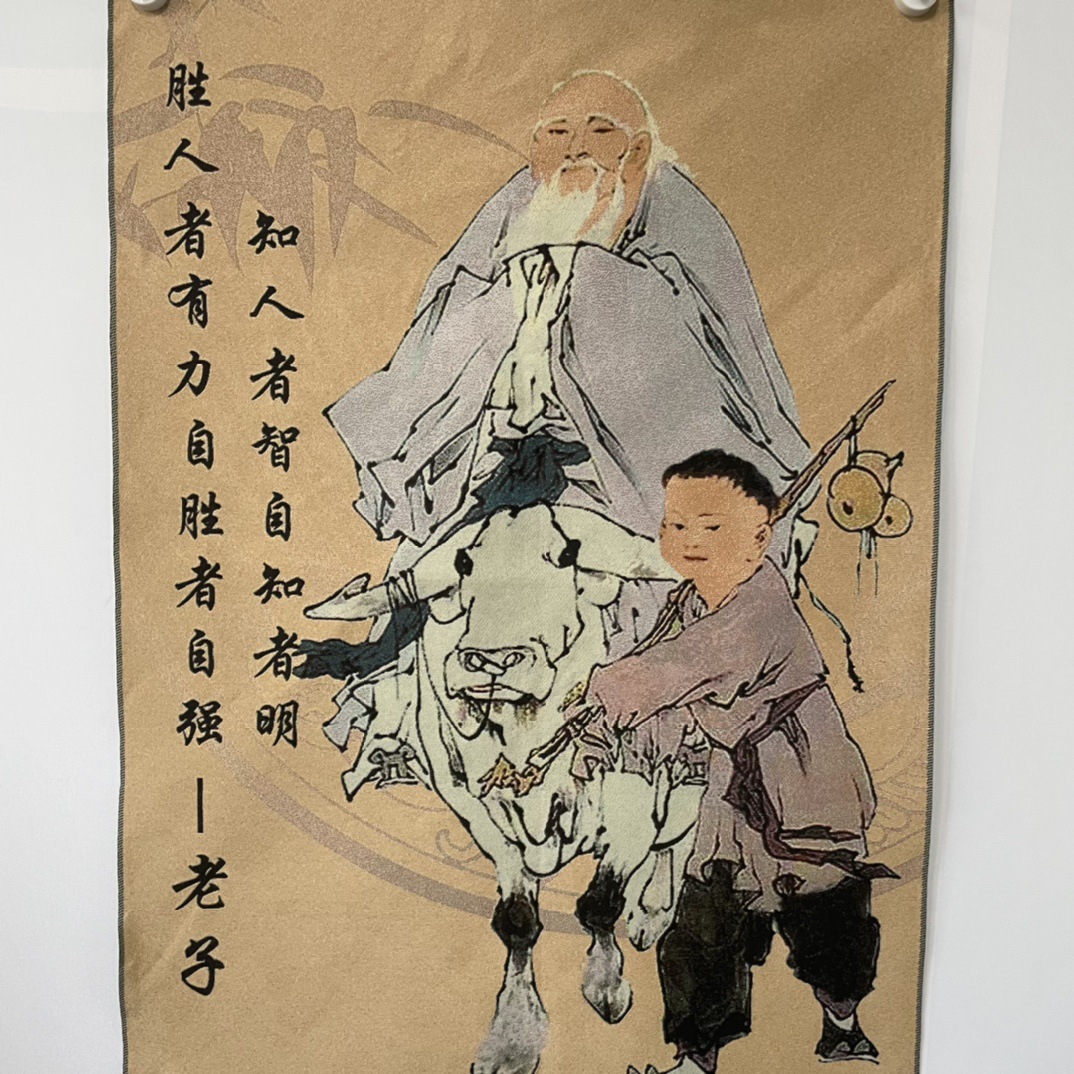 知人者智自知者明
胜人者有力自胜者自强—老子